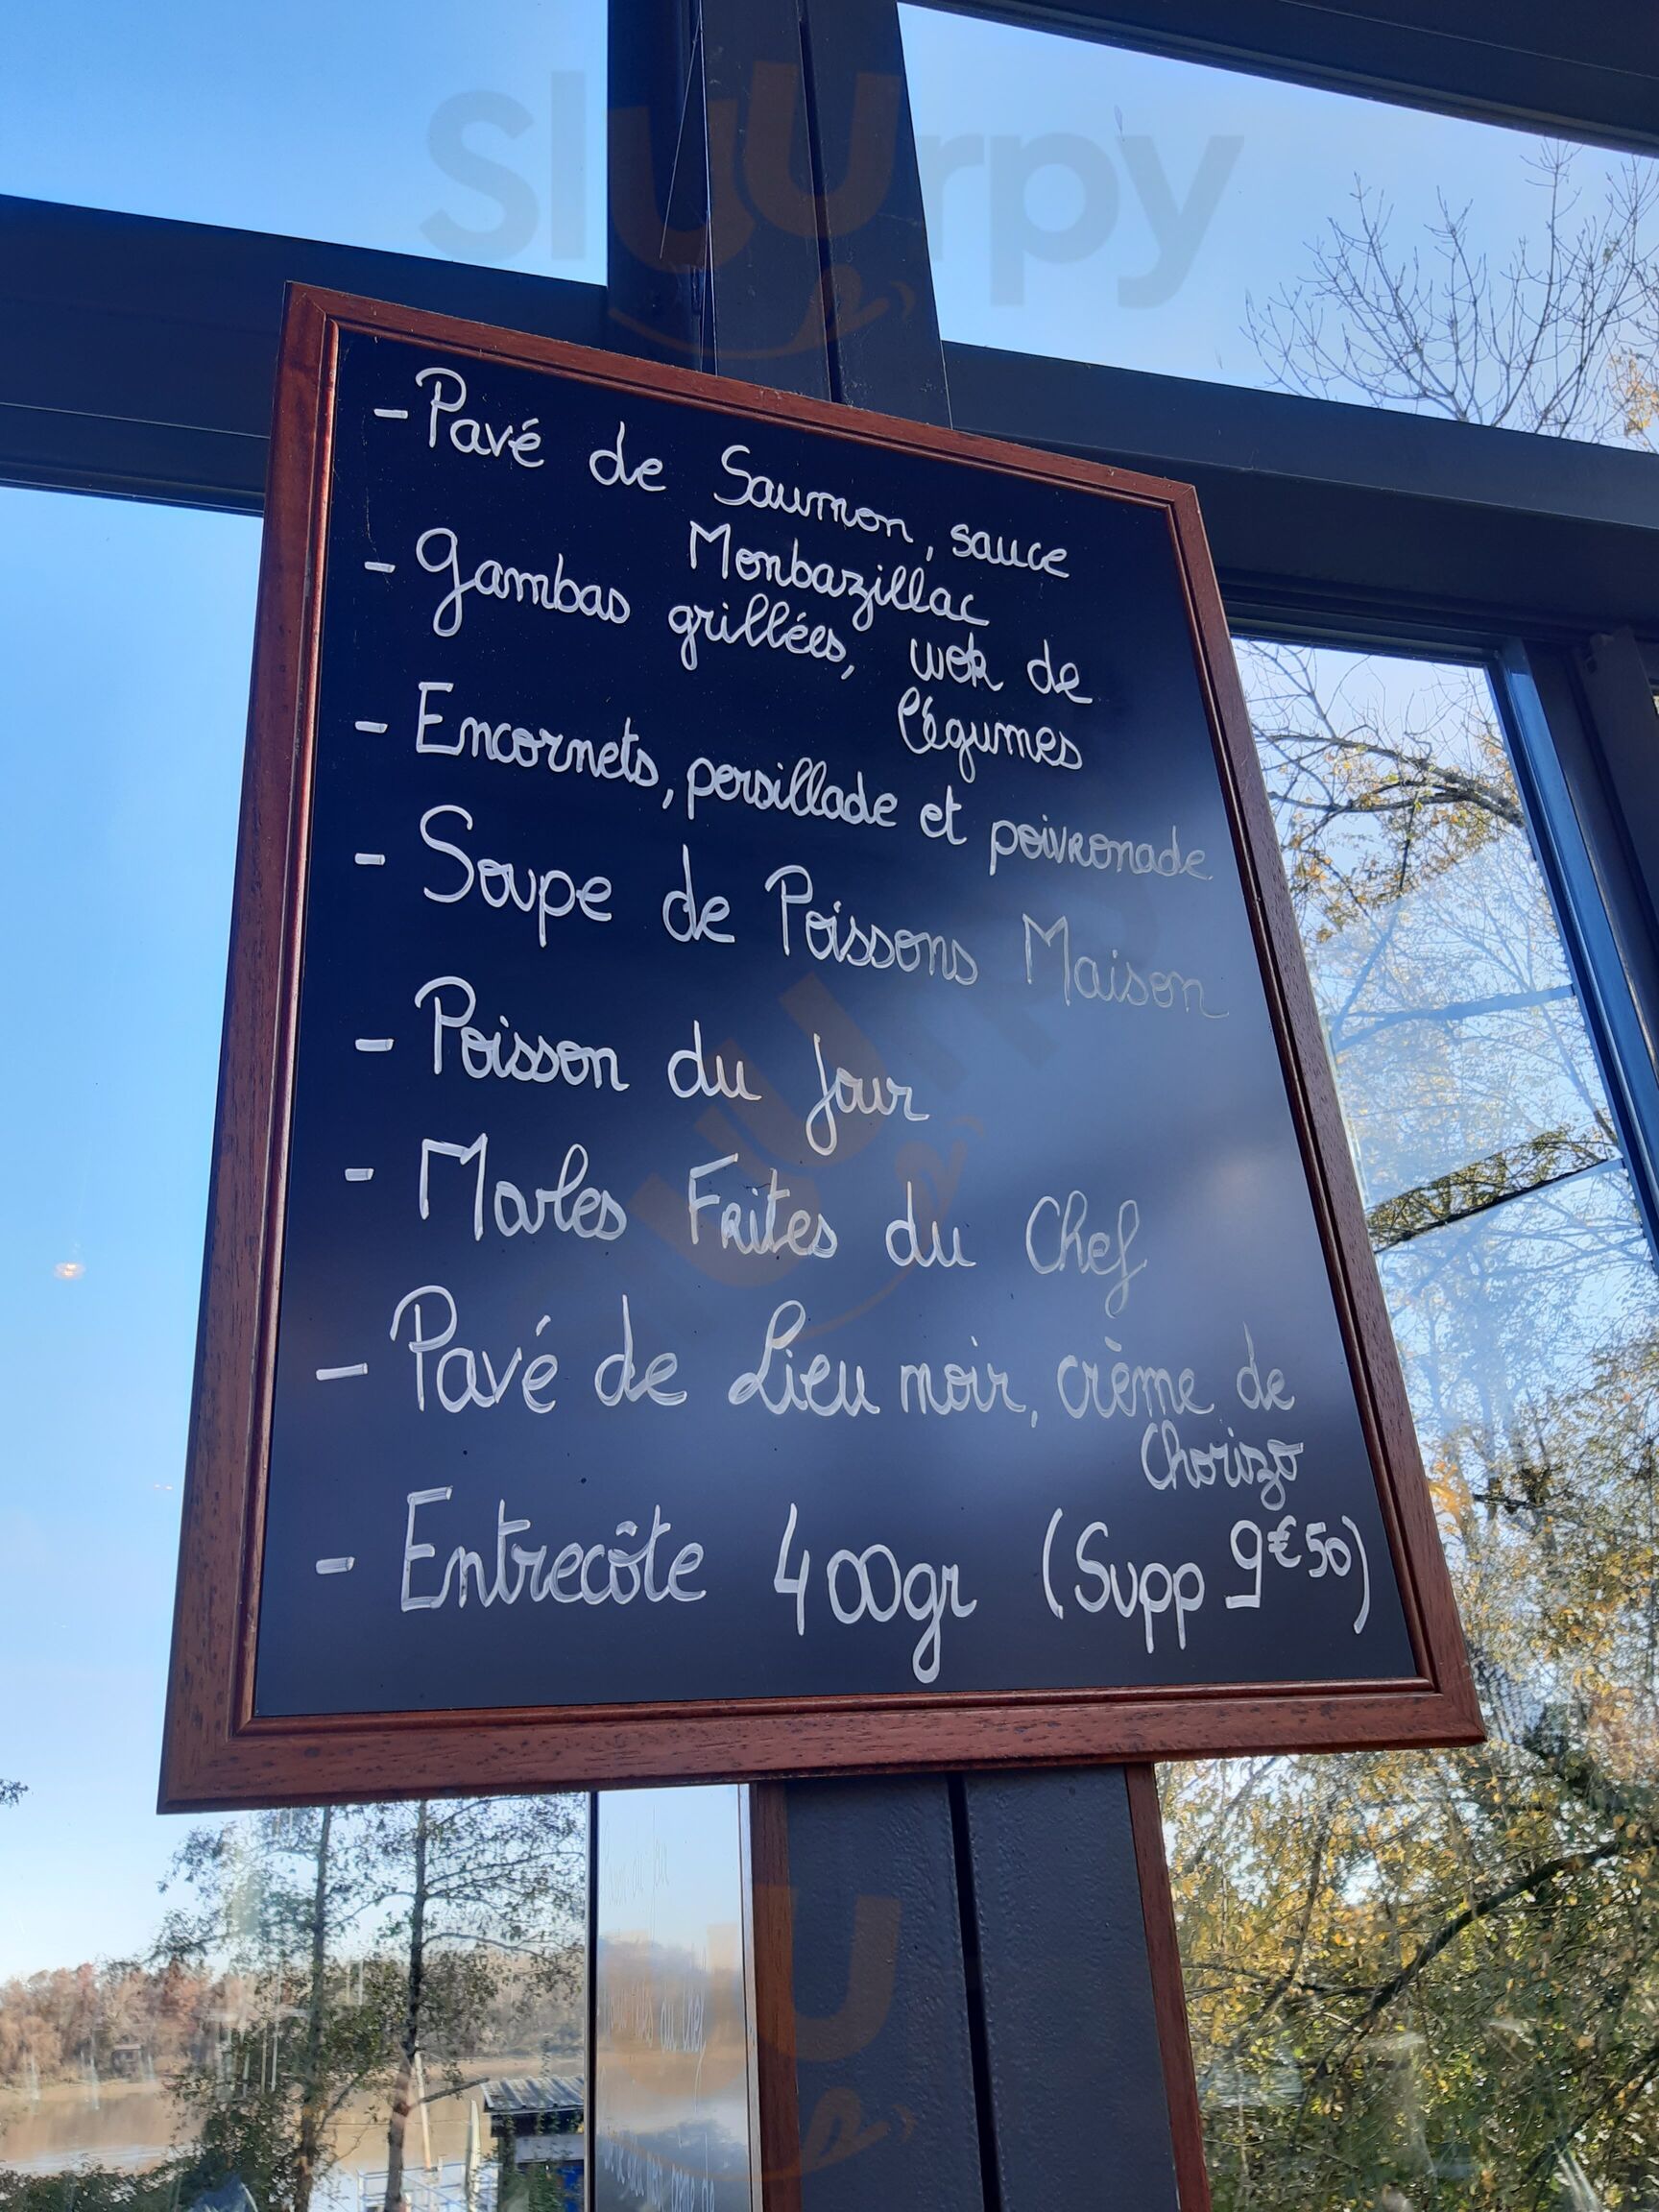 Sluurpy
- Pavé de Saumon, sauce
Monbazillac
- Gambas grillées, wok de
légumes
- Encornets, persillade et poivronade
- Soupe de Poissons Maison
- Poisson du jour
- Moules Frites du Chef
- Pavé de Lieu noir, crème de
Chorizo
- Entrecôte 400gr (Supp 9€50)